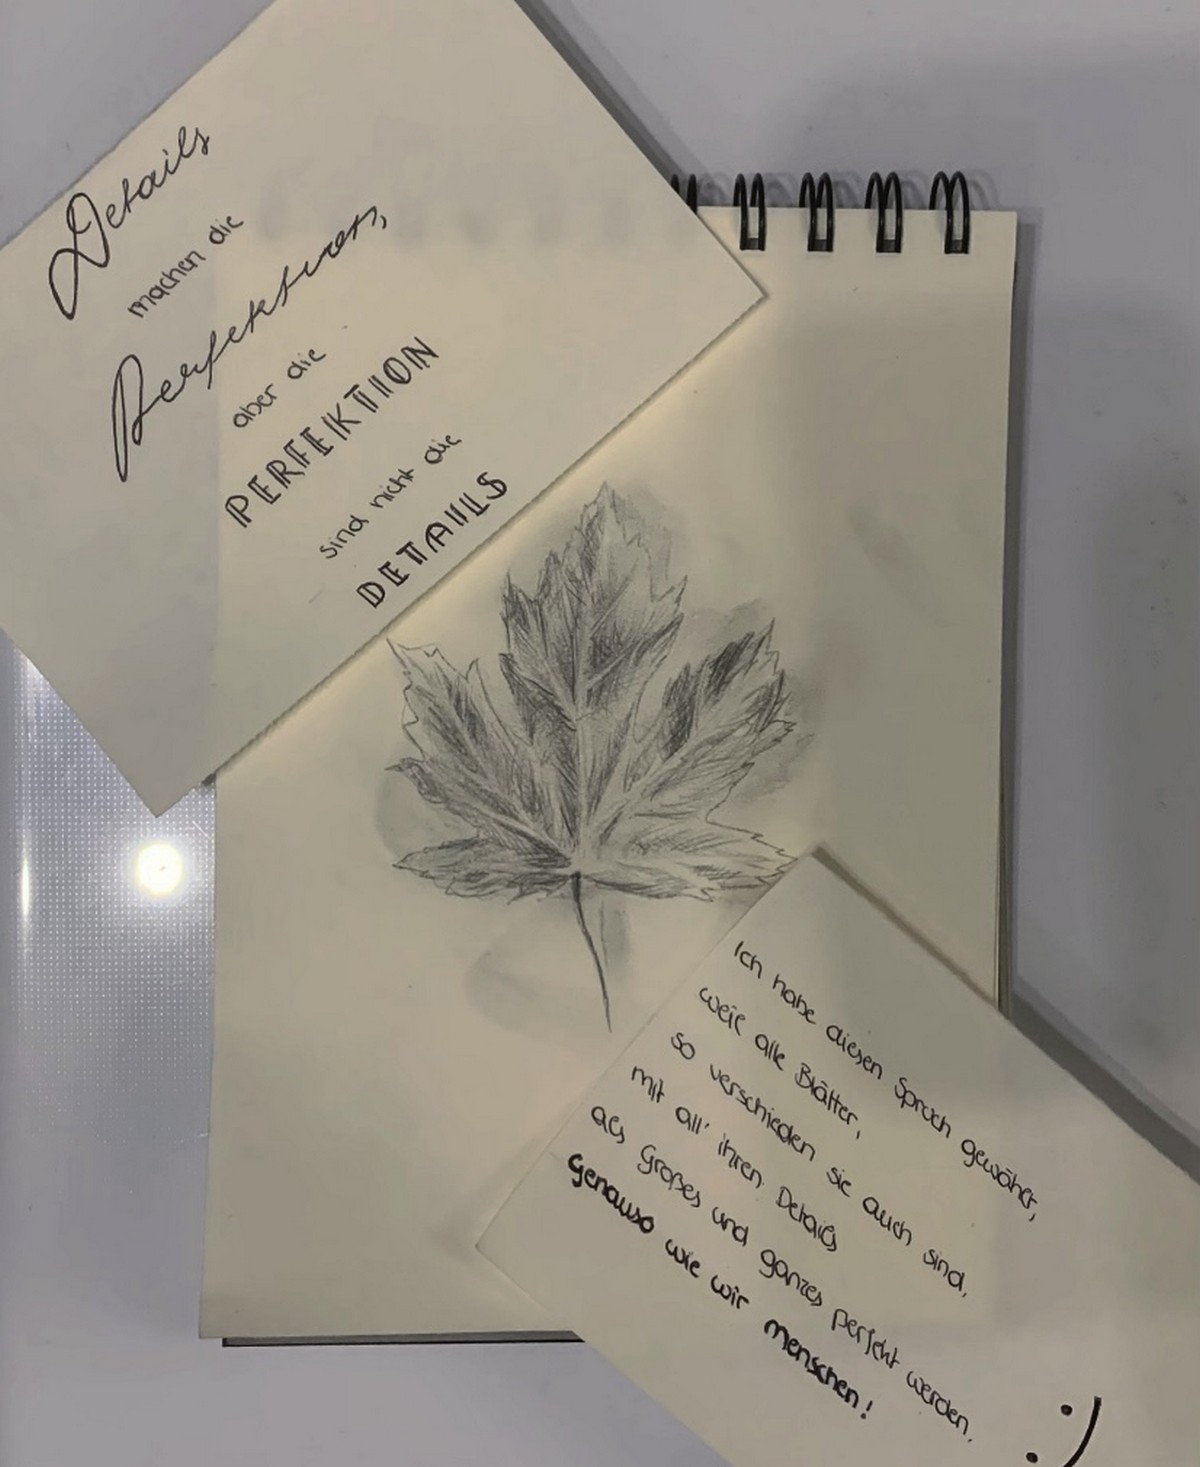 Details
machen die
Perfektion,
aber die
PERFEKTION
sind nicht die
DETAILS
Ich habe diesen Spruch gewählt,
weil alle Blätter,
so verschieden sie auch sind,
mit all' ihren Details
als großes und ganzes perfekt werden.
genauso wie wir menschen!
:)